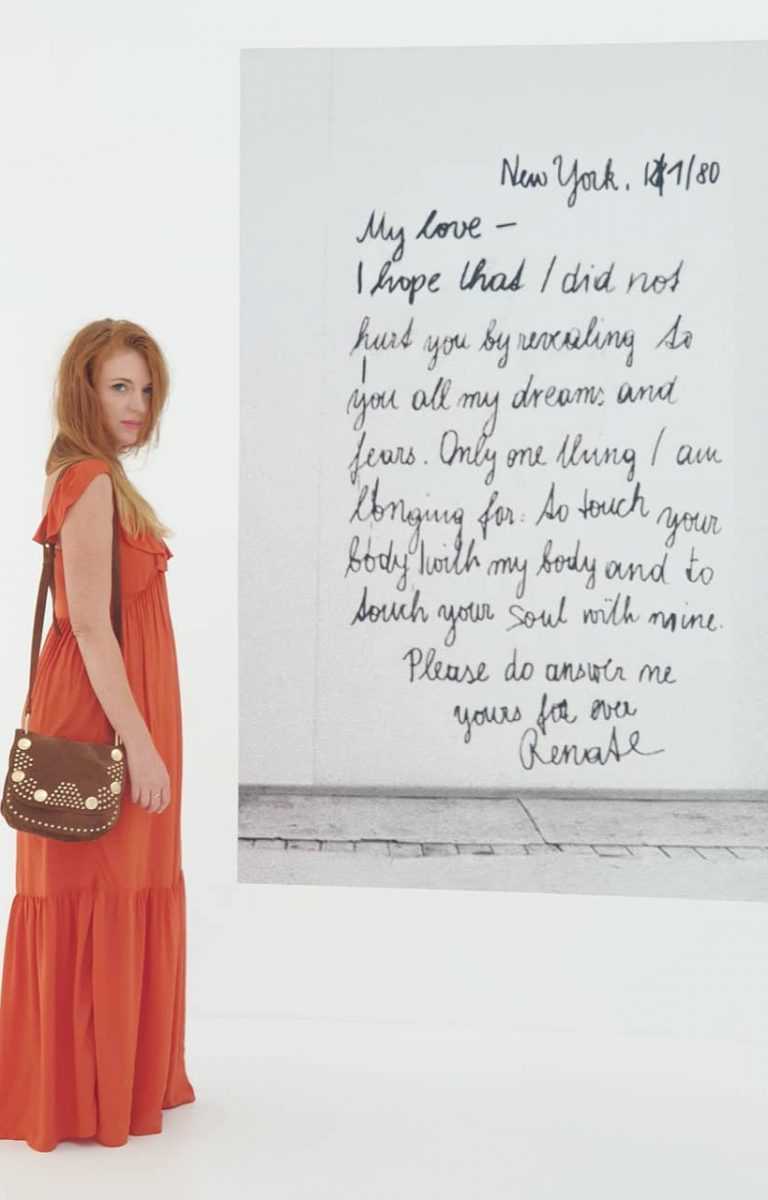 New York, 1/80
My love –
I hope that I did not
hurt you by revealing to
you all my dreams and
fears. Only one thing I am
longing for: to touch your
body with my body and to
touch your soul with mine.
Please do answer me
yours for ever
Renate